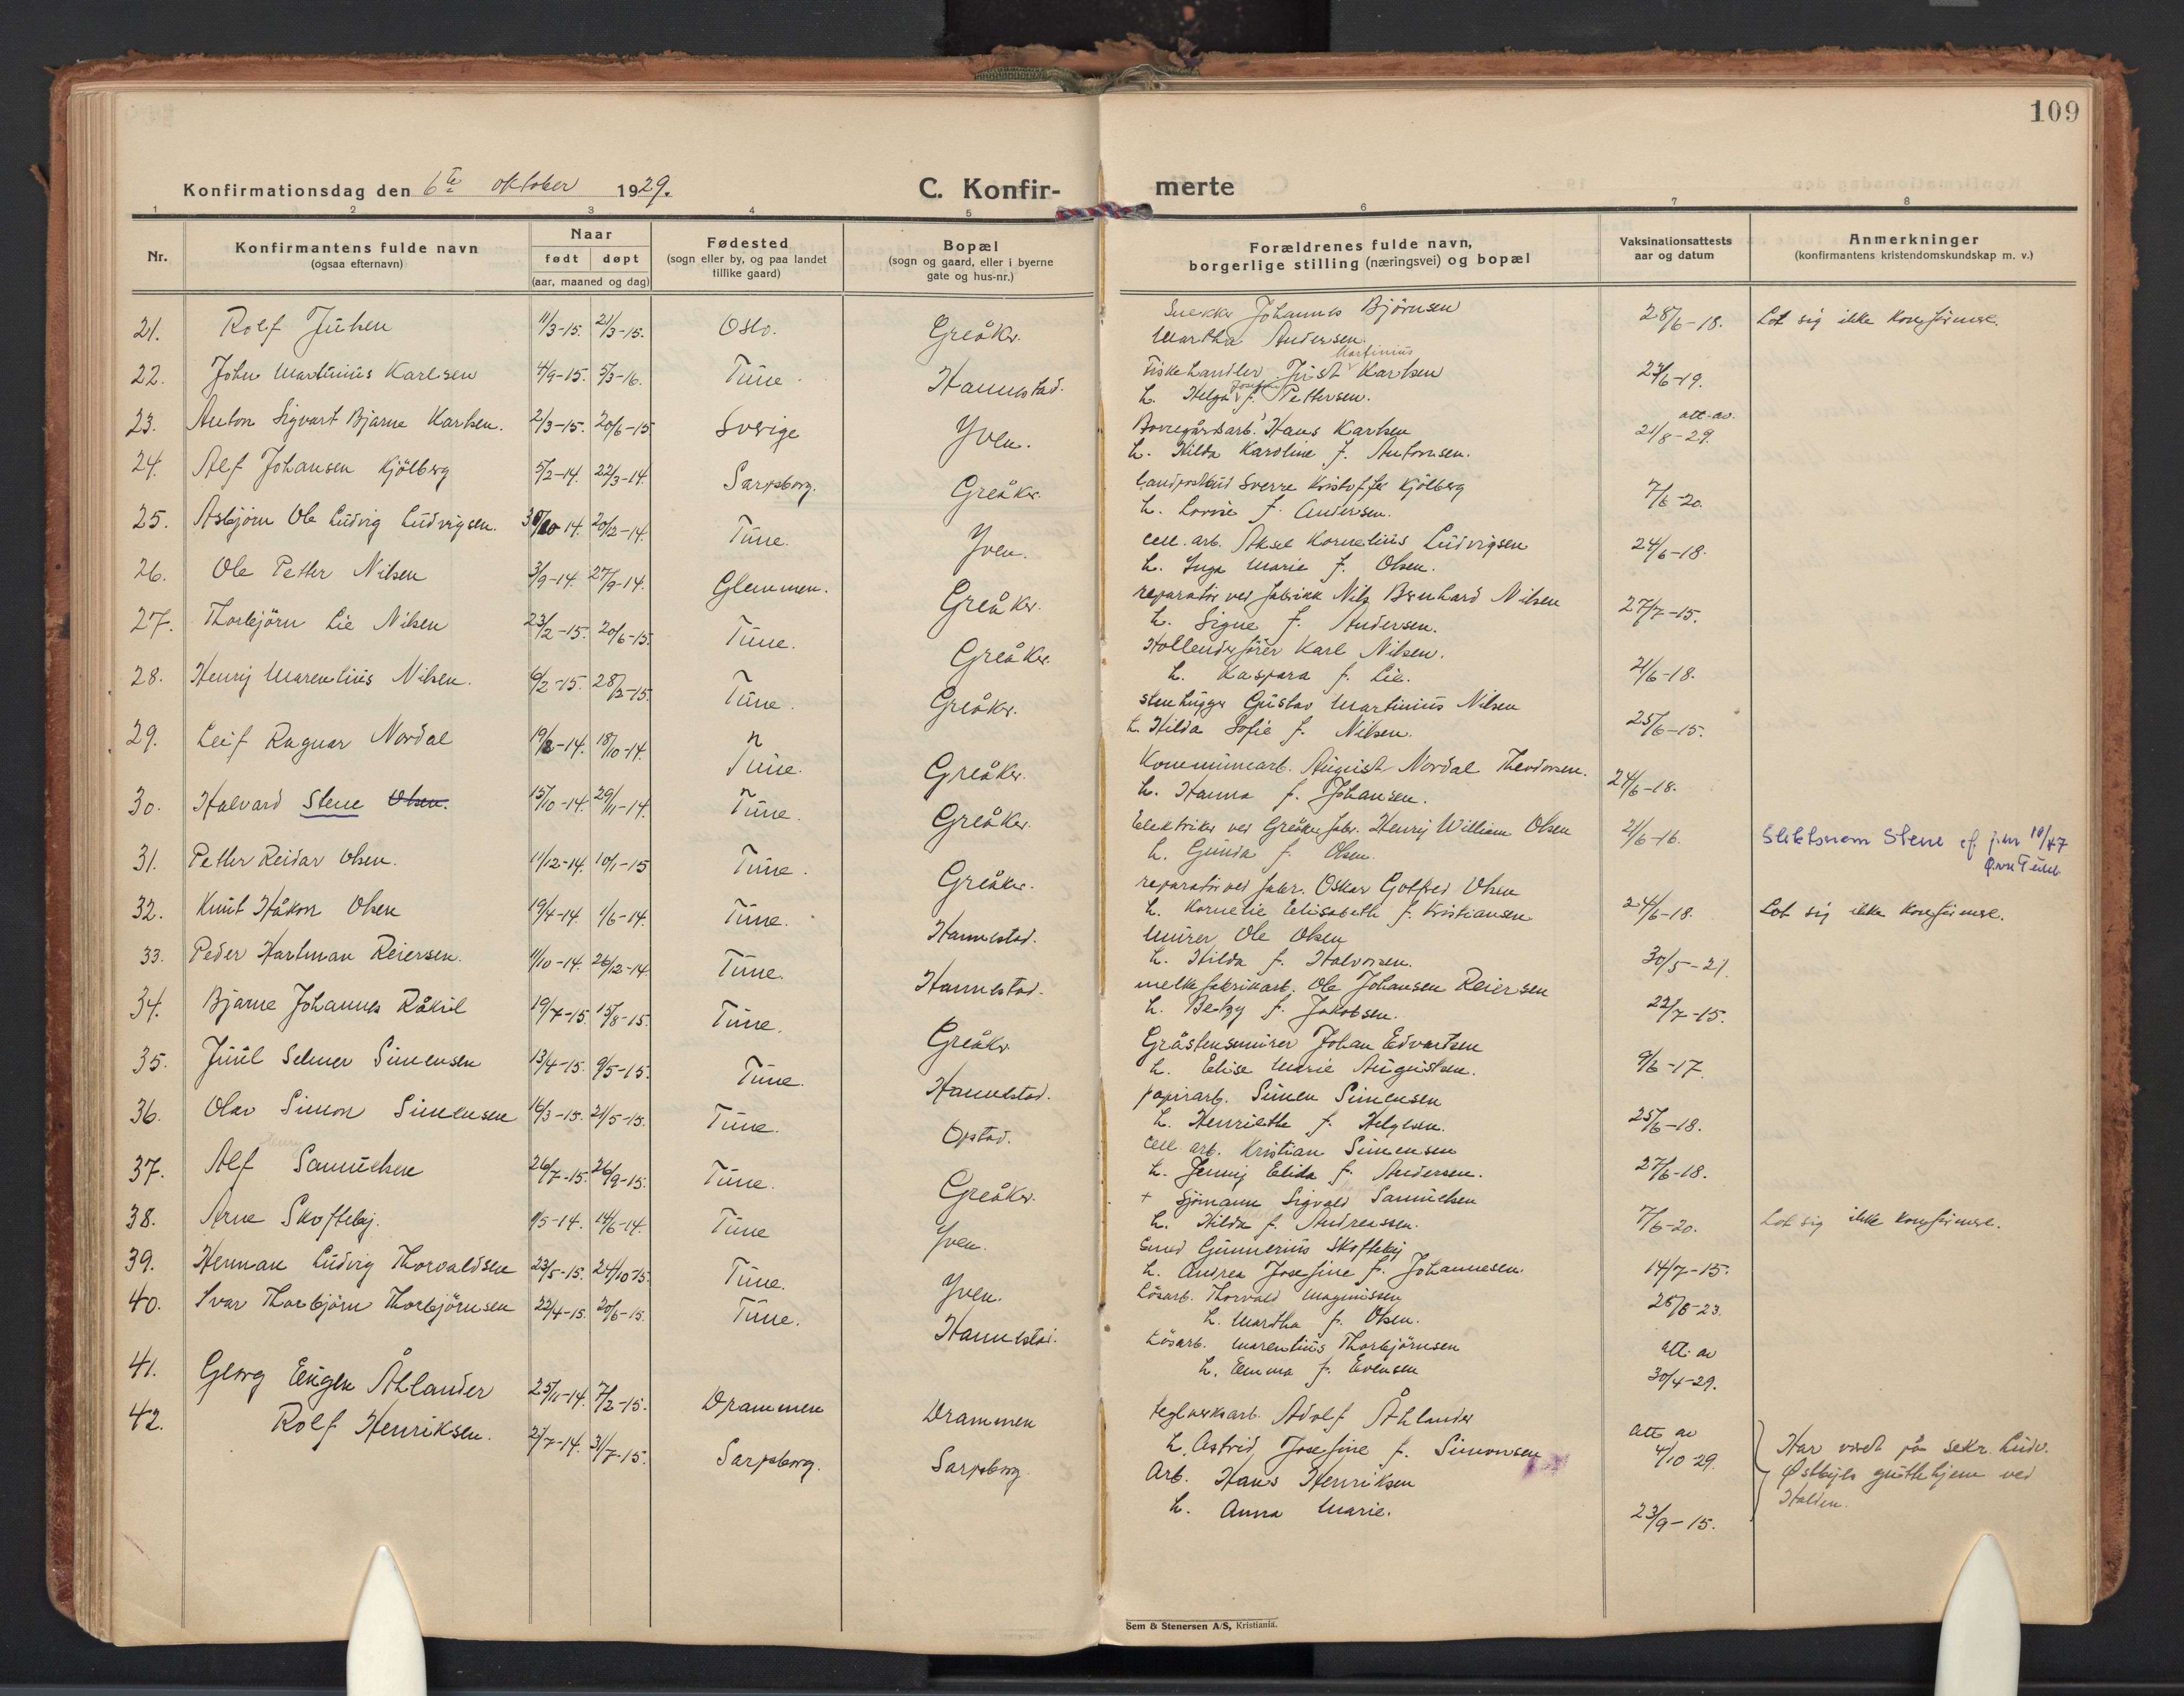 109
Konfirmationsdag den 6te oktober 1929. C. Konfir- merte
1 2 3 4 5 6 7 8
Nr. Konfirmantens fulde navn (ogsaa efternavn) Naar født døpt (aar, maaned og dag) Fødested (sogn eller by, og paa landet tillike gaard) Bopæl (sogn og gaard, eller i byerne gate og hus-nr.) Forældrenes fulde navn, borgerlige stilling (næringsvei) og bopæl Vaksinationsattests aar og datum Anmerkninger (konfirmantens kristendomskundskap m. v.)
21. Rolf Julsen 11/3-15. 21/3-15. Oslo. Greåker. Snekker Johannes Bjørnsen 28/6-18. Lot sig ikke konfirmere.
Martha Andersen.
22. John Martinius Karlsen 4/9-15. 5/3-16. Tune. Hannestad. Fiskehandler Just Martinius Karlsen 23/6-19.
h. Helga Josefine f. Pettersen.
23. Anton Sigvart Bjarne Karlsen. 2/3-15. 20/6-15 Sverige Yven. Borregårdsarb. Hans Karlsen att. av. 21/8-29.
h. Hilda Karoline f. Antonsen.
24. Alf Johansen Kjölberg 5/2-14. 22/3-14. Sarpsborg. Greåker. Landpostbud Sverre Kristoffer Kjölberg 7/6-20.
h. Lovise f. Andersen.
25. Asbjörn Ole Ludvig Ludvigsen. 30/10-14. 20/12-14. Tune. Yven. cell. arb. Aksel Kornelius Ludvigsen 24/6-18.
h. Inga Marie f. Olsen.
26. Ole Petter Nilsen 3/9-14. 27/9-14. Glemmen. Greåker. reparatör ved fabrikk Nils Bernhard Nilsen 27/7-15.
h. Signe f. Andersen.
27. Thorbjörn Lie Nilsen 23/2-15. 20/6-15. Tune. Greåker. Hollenderförer Karl Nilsen. 21/6-18.
h. Kaspara f. Lie.
28. Henrij Marentius Nilsen. 6/2-15. 28/3-15. Tune. Greåker. stenhugger Gustav Martinius Nilsen 25/6-15.
h. Hilda Sofie f. Nilsen.
29. Leif Ragnar Nordal 19/8-14. 18/10-14. Tune. Greåker. Kommunearb. August Nordal Theodorsen. 24/6-18.
h. Hanna f. Johansen.
30. Halvard Stene Olsen. 15/10-14. 29/11-14. Tune. Greåker. Elektriker ved Greåker fabr. Henrij William Olsen 21/6-16. Slektsnavn Stene cf. j.nr 10/47
h. Gunda f. Olsen. Tune
31. Petter Reidar Olsen. 11/12-14. 10/1-15 Tune. Greåker. reparatör ved fabr. Oskar Gotfred Olsen 24/6-18. Lot sig ikke konfirmere.
h. Kornelie Elisabeth f. Kristiansen
32. Knut Håkon Olsen 19/4-14. 1/6-14. Tune. Hannestad. Murer Ole Olsen 30/5-21.
h. Hilda f. Halvorsen.
33. Peder Hartman Reiersen. 11/10-14. 26/12-14. Tune. Hannestad. melkefabrikarb. Ole Johansen Reiersen 22/7-15.
h. Betzy f. Jakobsen.
34. Bjarne Johannes Råkil 19/7-15. 15/8-15. Tune. Greåker Gråstensmurer Johan Edvartsen 9/6-17.
h. Elise Marie Augustsen.
35. Juul Selmer Simensen 13/4-15. 9/5-15. Tune. Hannestad. papirarb. Simen Simensen 25/6-18.
h. Henriette f. Helgesen.
36. Olav Simon Simensen 16/3-15. 21/5-15. Tune. Opstad. cell. arb. Kristian Simensen 27/6-18.
h. Jennij Elida f. Andersen.
37. Alf Henry Samuelsen 26/7-15. 26/9-15. Tune. Greåker. + Sjömann Sigvald Samuelsen 7/6-20. Lot sig ikke konfirmere.
h. Hilda f. Andreassen.
38. Arne Skoftebij. 1/5-14. 14/6-14. Tune Yven. Smed Gunnerius Skoftebij 14/7-15.
h. Andrea Josefine f. Johannesen.
39. Herman Ludvig Thorvaldsen 23/5-15. 24/10-15. Tune. Yven. Lösarb. Thorvald Magnussen 26/6-23.
h. Martha f. Olsen.
40. Ivar Thorbjörn Thorbjörnsen 22/4-15 20/6-15. Tune. Hannestad. Lösarb. Marentius Thorbjörnsen att. av 30/4-29.
h. Emma f. Evensen
41. Georg Eugen Åhlander 25/11-14. 7/2-15. Drammen Drammen teglverksarb. Adolf Åhlander att av 4/10-29. Har vært på sekr. Ludv.
h. Astrid Josefine f. Simonsen Østbyes guttehjem ved
42. Rolf Henriksen. 2/7-14. 31/7-15. Sarpsborg. Sarpsborg Arb. Hans Henriksen 23/9-15. Halden.
h. Anna Marie.
Sem & Stenersen A/S, Kristiania.